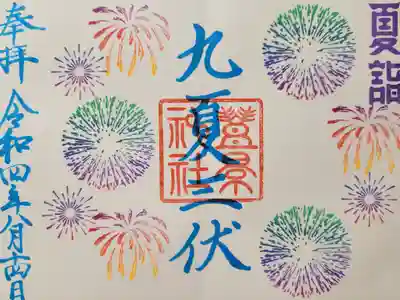 夏詣
九夏三伏
豊景
神社
奉拝
令和四年八月十四日